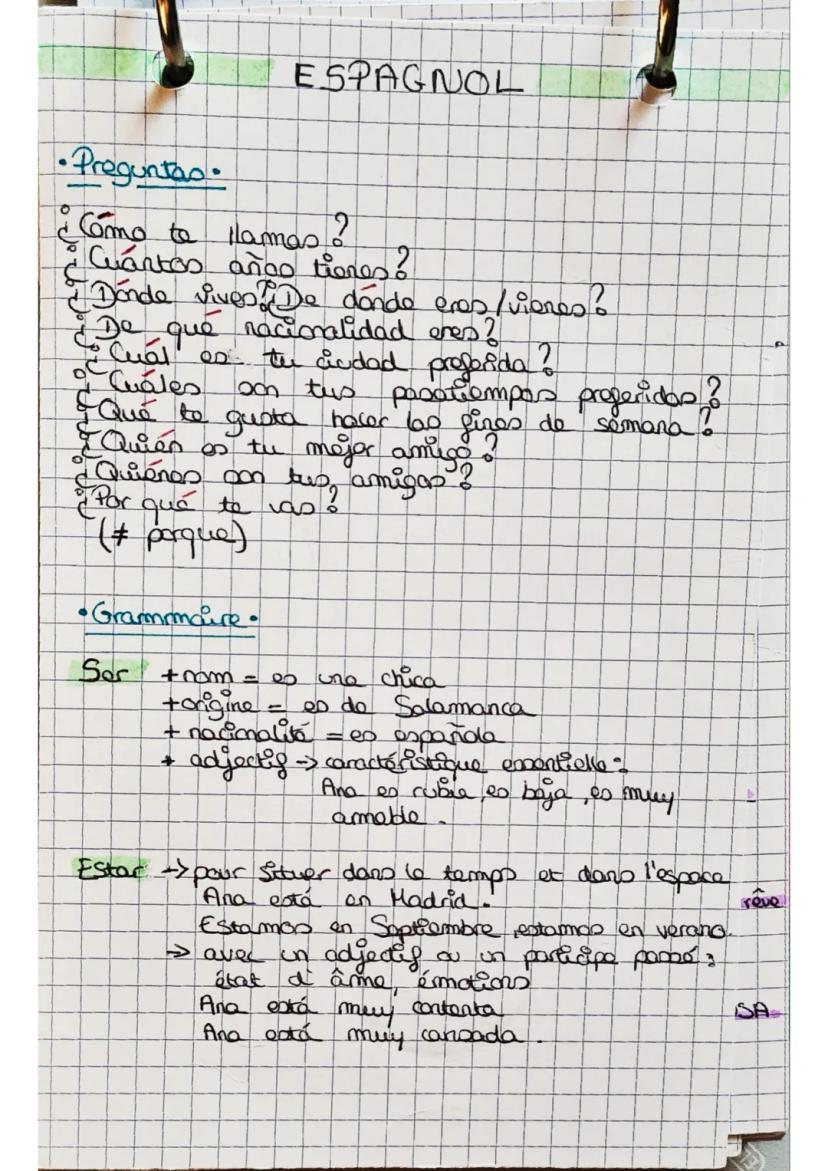 ESPAGNOL
• Preguntas •
¿Cómo te llamas?
¿Cuántos años tienes?
¿Dónde vives? ¿De dónde eres/vienes?
¿De qué nacionalidad eres?
¿Cuál es tu ciudad preferida?
¿Cuáles son tus pasatiempos preferidos?
¿Qué te gusta hacer los fines de semana?
¿Quién es tu mejor amigo?
¿Quiénes son tus amigas?
¿Por qué te vas?
(≠ porque)
• Grammaire •
Ser +nom = es una chica
+origine = es de Salamanca
+ nacionalité = es española
+ adjectif → caractéristique essentielle :
Ana es rubia, es baja, es muy
amable.
Estar → pour situer dans le temps et dans l'espace
Ana está en Madrid.
rêve
Estamos en Septiembre, estamos en verano.
→ avec un adjectif ou un participe passé :
état d'âme, émotions
Ana está muy contenta
SA
Ana está muy cansada.